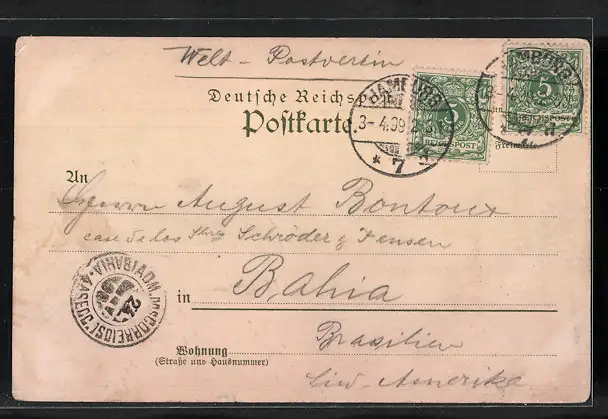 Welt - Postverein
Deutsche Reichs
Postkarte
HAMBURG
3- 4.99
* 7
5
REICHSPOST
5
REICHSPOST
MBURG
Freimarke
An
Herrn August Bontoux
casa de los Snres Schröder & Jensen
in Bahia
Brasilien
Wohnung
(Straße und Hausnummer)
Süd-Amerika
CORREIOS
BAHIA
24